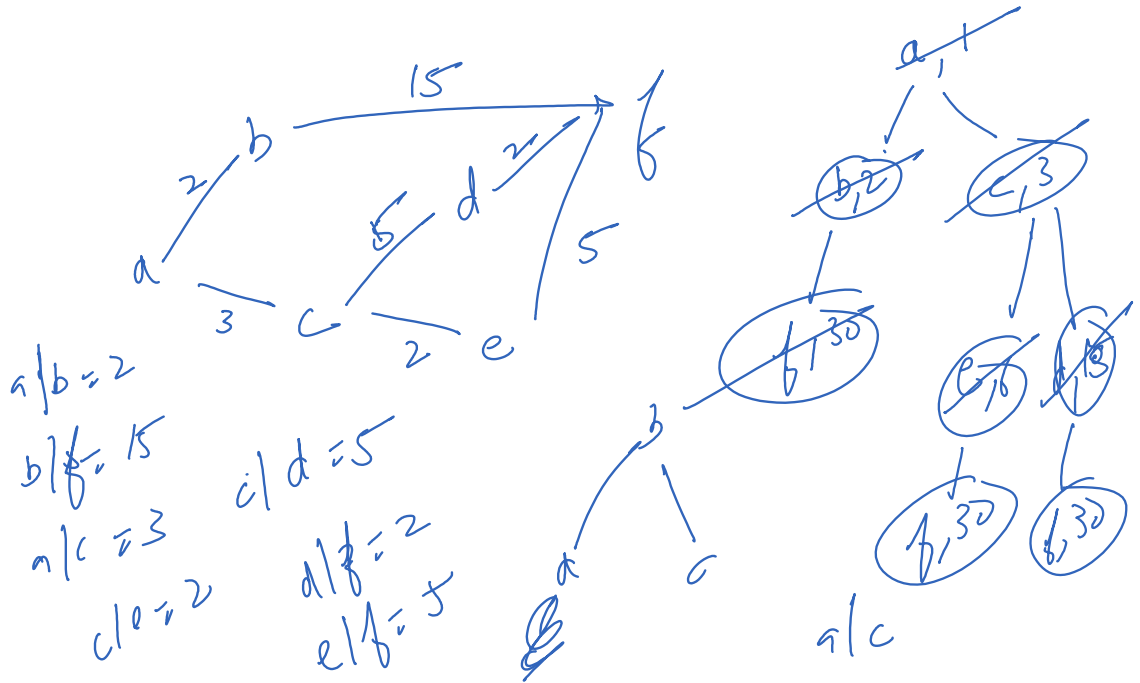 15
b
f
2
2
d
5
5
a
3
c
2
e
a/b = 2
b/f = 15
a/c = 3
c/e = 2
c/d = 5
d/f = 2
e/f = 5
a, 1
b, 2
c, 3
f, 30
f, 30
f, 30
b
a
c
a/c